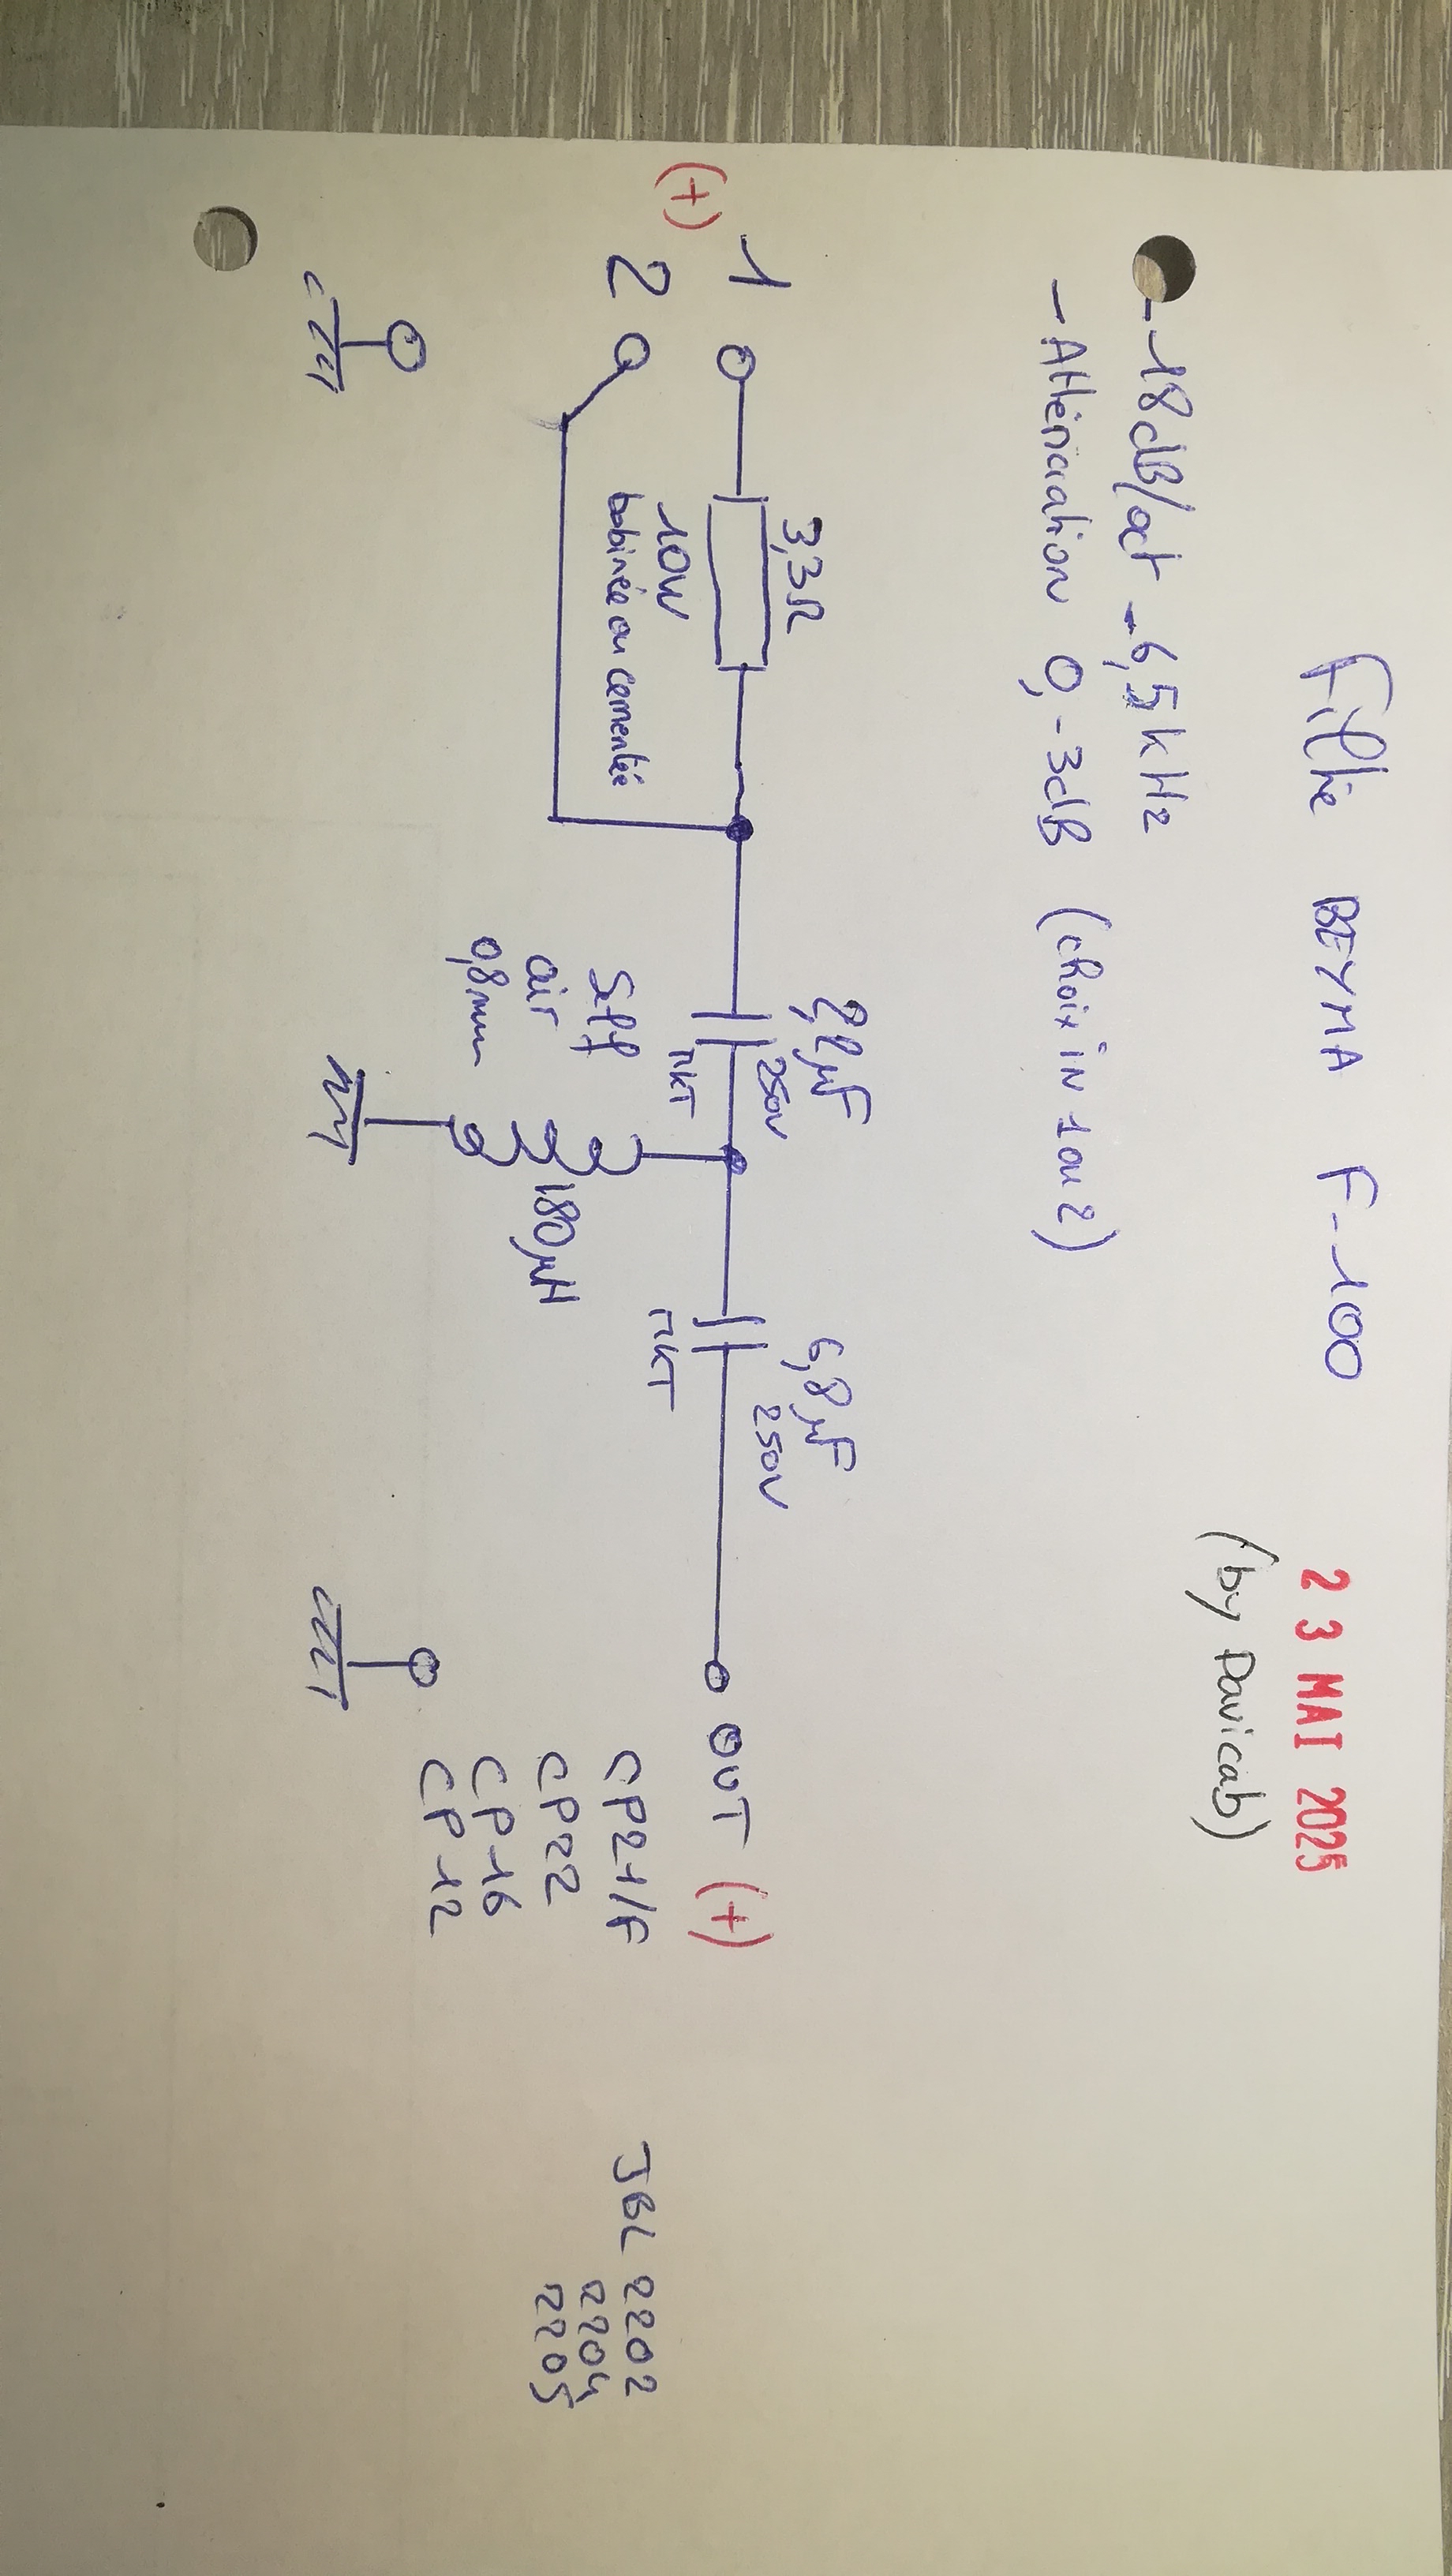 Filtre BEYMA F-100
23 MAI 2025
(by Davicab)
- 18dB/oct - 6,5kHz
- Atténuation 0, -3dB (choix in 1 ou 2)
(+)
1
2
3,3Ω
10W
bobinée ou cementée
2,2µF
250V
MKT
Self
air
0,8mm
180µH
6,8µF
250V
MKT
OUT (+)
CP21/F
CP22
CP16
CP12
JBL 2202
2204
2205